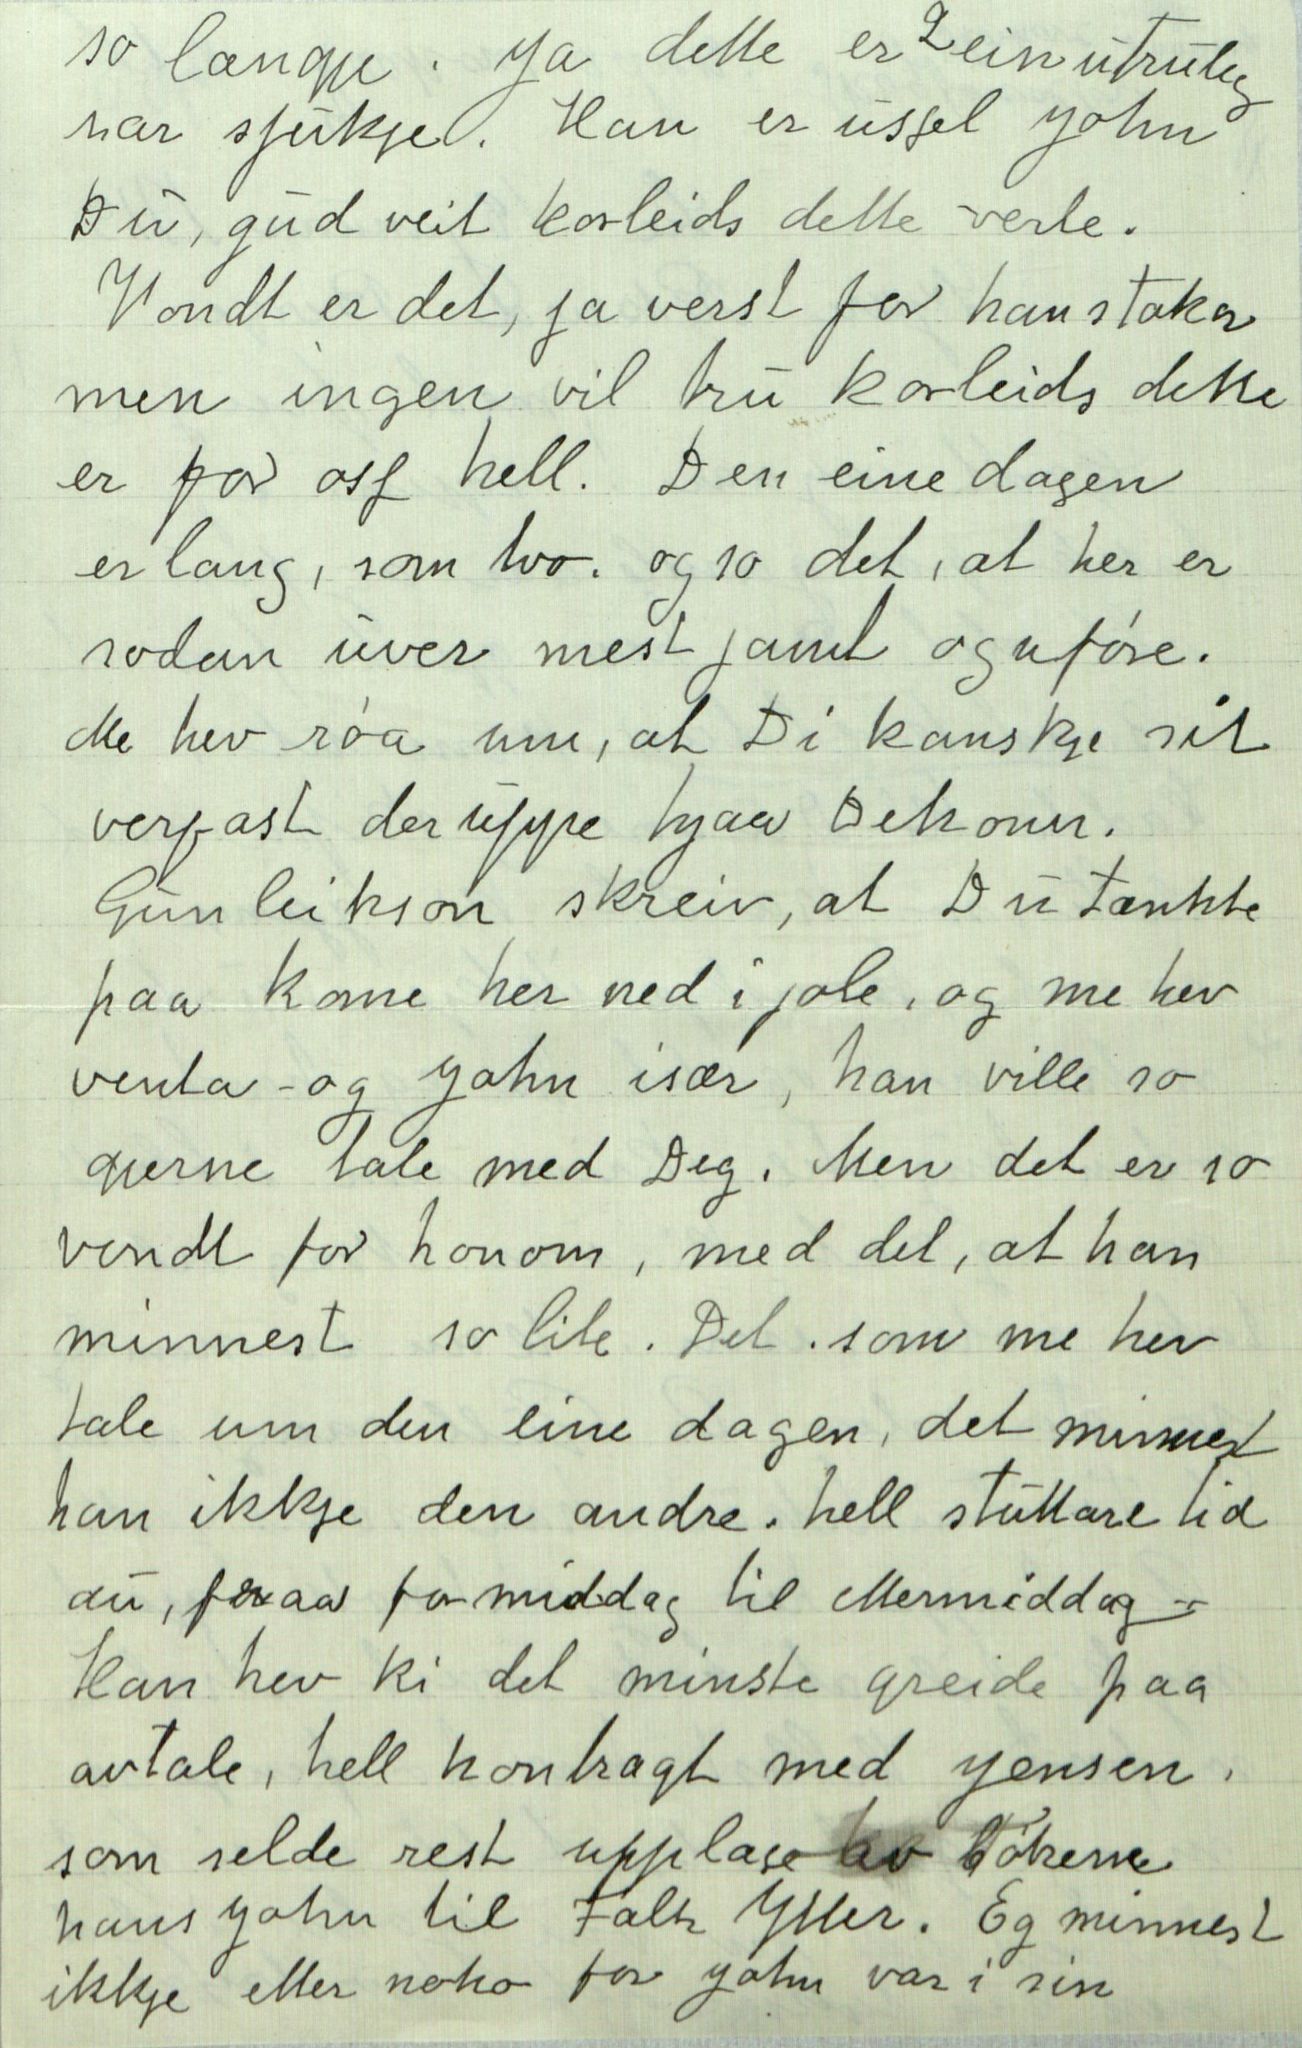 so længje. Ja dette er 2 ein utruleg
rar sjukje. Han er ussel John
Du, gud veit korleids dette verte.
Vondt er det, ja verst for han stakar
men ingen vil tru korleids dette
er for oss hell. Den eine dagen
er lang, som tvo. og so det, at her er
sodan uver mest jamt og uföre.
Me hev röa um, at Di kanskje sit
verfast der uppe hjaa Dekonn.
Gunleikson skreiv, at Du tænkte
paa kome her ned i jole, og me hev
venta - og John især, han ville so
gjerne tale med Deg. Men det er so
vondt for honom, med det, at han
minnest so lite. Det som me hev
tale um den eine dagen, det minnest
han ikkje den andre. hell stuttare tid
au, fraa formiddag til ettermiddag -
Han hev ki det minste greide paa
avtale, hell kontragt med Jensen,
som selde rest upplage av bökerne
hans John til Falk Ytter. Eg minnest
ikkje etter noko for John var i sin